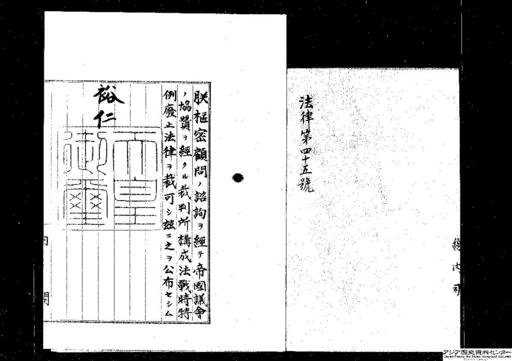 法律第四十五號
朕樞密顧問ノ諮詢ヲ經テ帝國議會
ノ協贊ヲ經タル裁判所構成法戰時特
例廢止法律ヲ裁可シ玆ニ之ヲ公布セシム
裕仁
天皇御璽
内閣
アジア歴史資料センター
Japan Center for Asian Historical Records